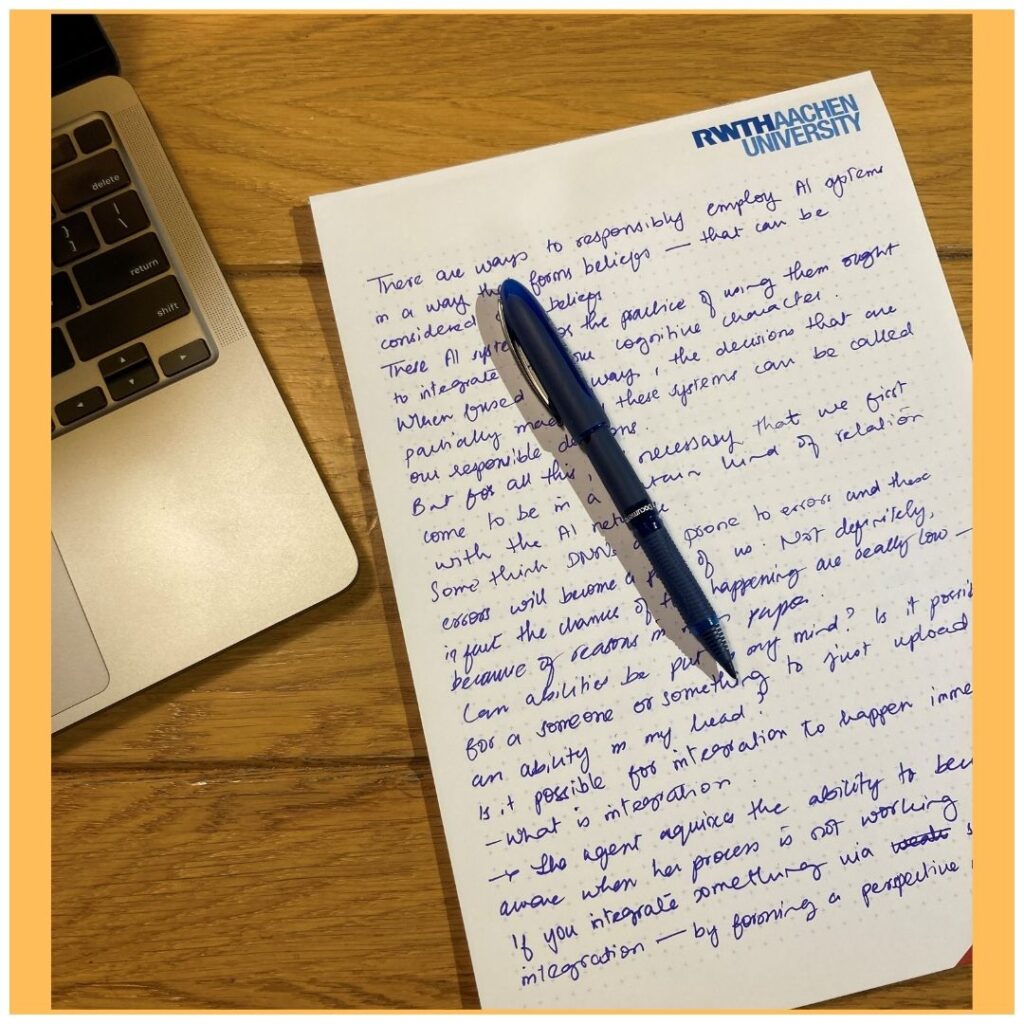 delete
{
[
}
]
|
\
return
shift
RWTHAACHEN
UNIVERSITY
There are ways to responsibly employ AI systems
in a way forms beliefs — that can be
considered beliefs
These AI the practice of using them ought
to integrate our cognitive character.
When used way, the decisions that are
partially made these systems can be called
our responsible
But for all this, necessary that we first
come to be in a kind of relation
with the AI
Some think prone to errors and these
errors will become a of us. Not definitely,
in fact the chances of happening are really low —
because of reasons in paper.
Can abilities be put my mind? Is it
for a someone or something to just upload
an ability in my head?
Is it possible for integration to happen
- what is integration.
→ The agent aquires the ability to
aware when her process is not working
If you integrate something via
integration — by forming a perspective